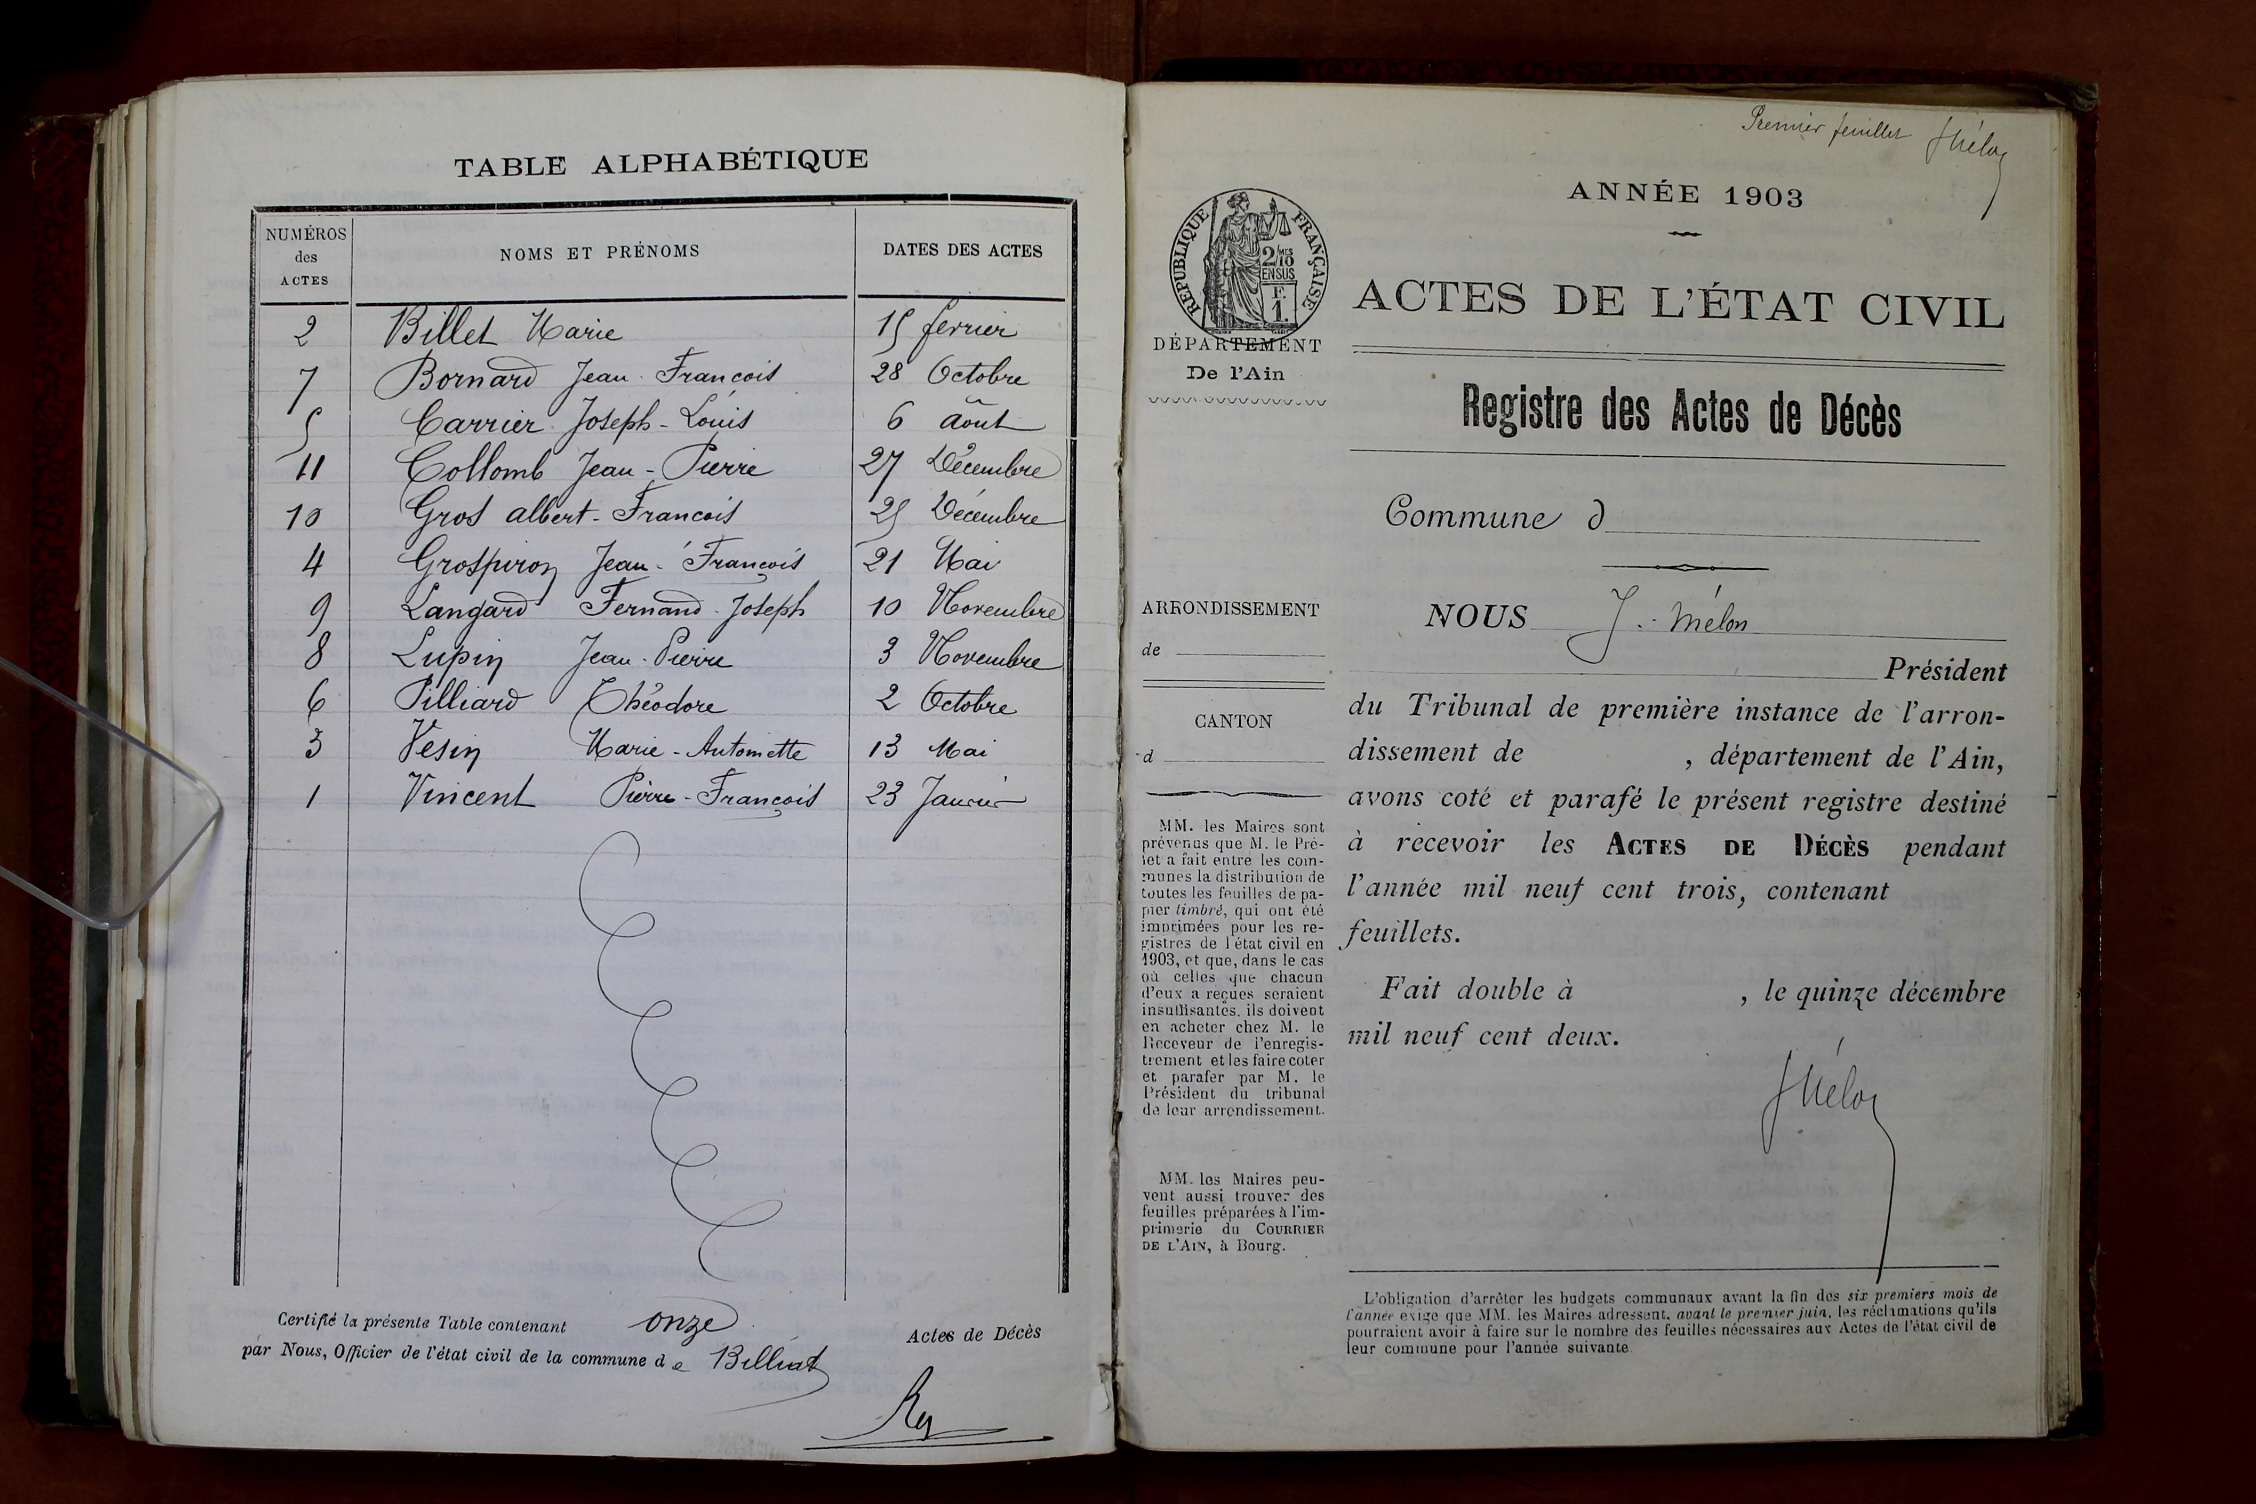 TABLE ALPHABÉTIQUE
NUMÉROS des ACTES NOMS ET PRÉNOMS DATES DES ACTES
2 Billet Marie 15 fevrier
7 Bornard Jean François 28 Octobre
5 Carrier Joseph-Louis 6 Août
11 Collomb Jean-Pierre 27 Décembre
10 Gros albert-Francois 25 Décembre
4 Grospiron Jean-François 21 Mai
9 Langard Fernand-Joseph 10 Novembre
8 Lupin Jean-Pierre 3 Novembre
6 Pilliard Théodore 2 Octobre
3 Vesin Marie-Antoinette 13 Mai
1 Vincent Pierre-François 23 Janvier
Certifié la présente Table contenant onze Actes de Décès
par Nous, Officier de l'état civil de la commune de Billiat
Rey
Premier feuillet JMélon
ANNÉE 1903
RÉPUBLIQUE FRANÇAISE
2/10MES
EN SUS
F.
1.
DÉPARTEMENT
De l'Ain
ARRONDISSEMENT
de
CANTON
d
MM. les Maires sont
prévenus que M. le Pré-
fet a fait entre les com-
munes la distribution de
toutes les feuilles de pa-
pier timbré, qui ont été
imprimées pour les re-
gistres de l'état civil en
1903, et que, dans le cas
où celles que chacun
d'eux a reçues seraient
insuffisantes, ils doivent
en acheter chez M. le
Receveur de l'enregis-
trement et les faire coter
et parafer par M. le
Président du tribunal
de leur arrondissement.
MM. les Maires peu-
vent aussi trouver des
feuilles préparées à l'im-
primerie du COURRIER
DE L'AIN, à Bourg.
ACTES DE L'ÉTAT CIVIL
Registre des Actes de Décès
Commune d
NOUS J. Mélon
Président
du Tribunal de première instance de l'arron-
dissement de , département de l'Ain,
avons coté et parafé le présent registre destiné
à recevoir les ACTES DE DÉCÈS pendant
l'année mil neuf cent trois, contenant
feuillets.
Fait double à , le quinze décembre
mil neuf cent deux.
JMélon
L'obligation d'arrêter les budgets communaux avant la fin des six premiers mois de
l'année exige que MM. les Maires adressent, avant le premier juin, les réclamations qu'ils
pourraient avoir à faire sur le nombre des feuilles nécessaires aux Actes de l'état civil de
leur commune pour l'année suivante.